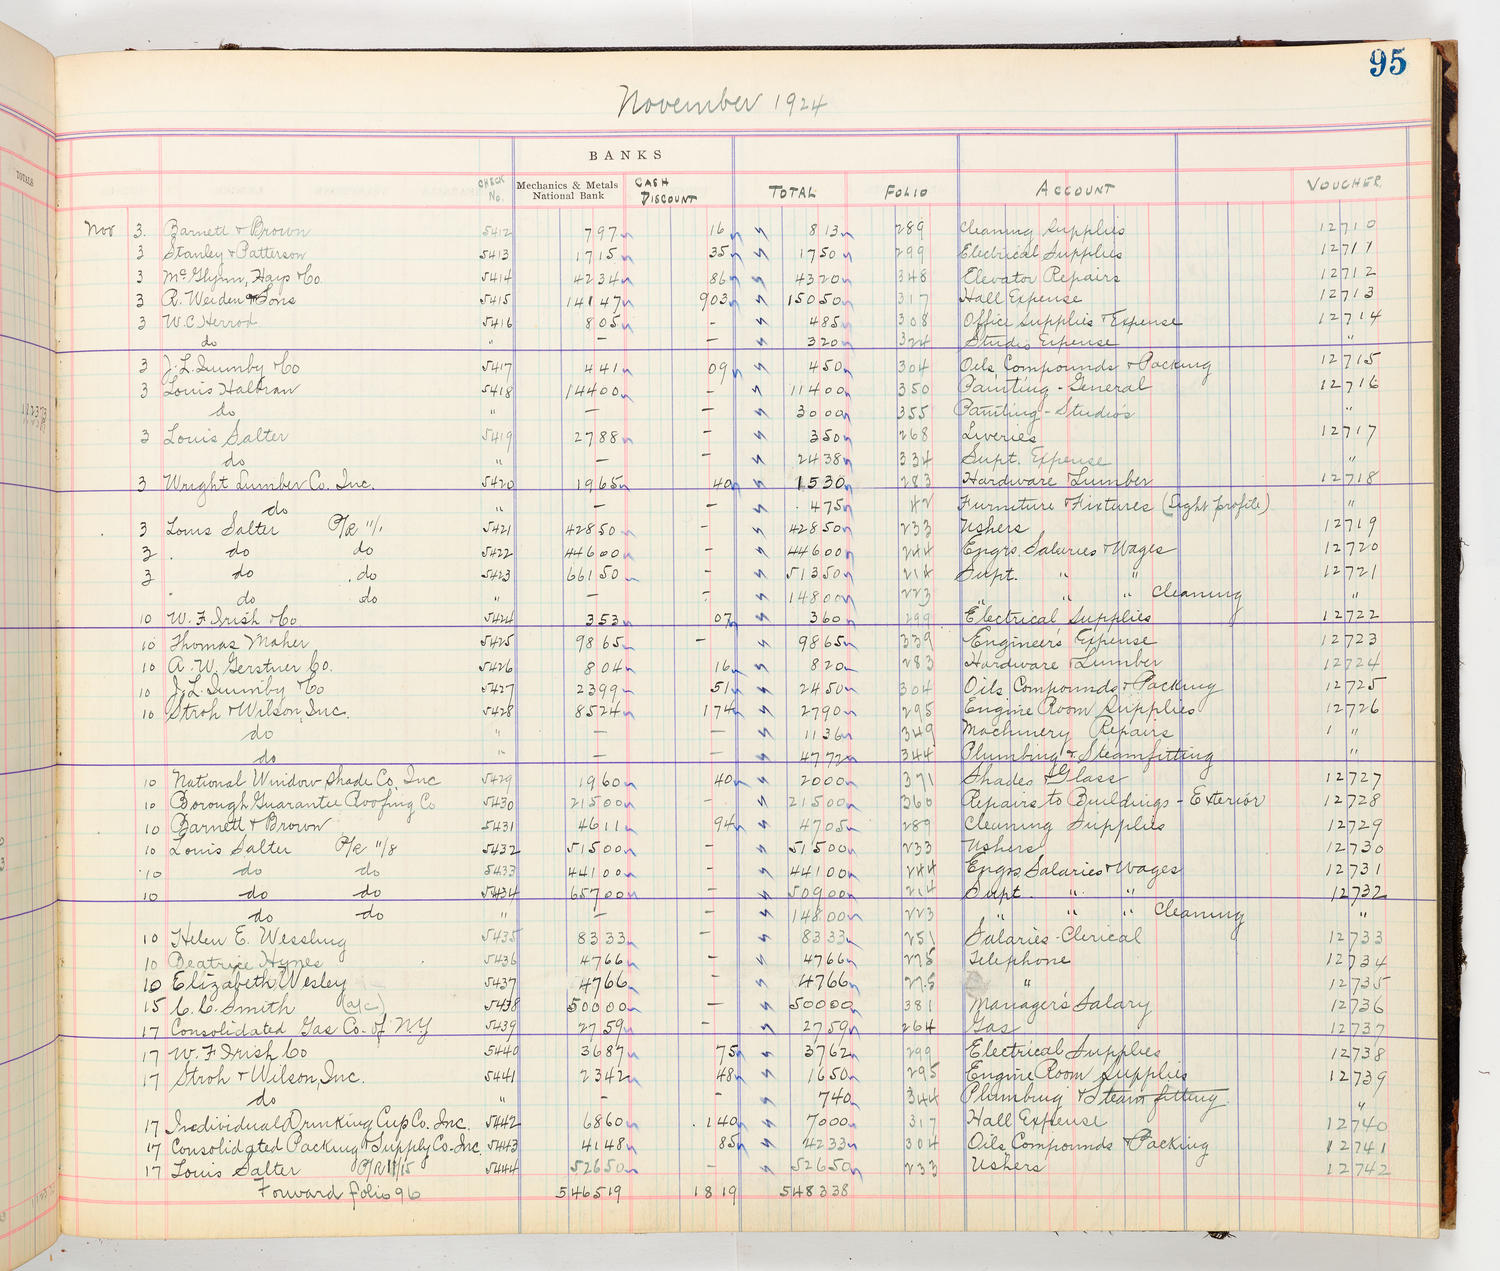 95
November 1924
BANKS
TOTALS
CHECK No. Mechanics & Metals National Bank CASH DISCOUNT TOTAL FOLIO ACCOUNT VOUCHER
Nov 3. Barnett & Brown 5412 797 16 813 289 Cleaning Supplies 12710
3 Stanley & Patterson 5413 1715 35 1750 299 Electrical Supplies 12711
3 McGlynn, Hays & Co 5414 4234 86 4320 348 Elevator Repairs 12712
3 R. Weiden & Sons 5415 14147 903 15050 317 Hall Expense 12713
3 W.C. Herrod 5416 805 - 485 308 Office Supplies & Expense 12714
do " - - 320 324 Studio Expense "
3 J.L. Quimby & Co 5417 441 09 450 304 Oils Compounds & Packing 12715
3 Louis Halbran 5418 14400 - 11400 350 Painting - General 12716
do " - - 3000 355 Painting - Studios "
3 Louis Salter 5419 2788 - 350 268 Liveries 12717
do " - - 2438 334 Supt. Expense "
3 Wright Lumber Co. Inc. 5420 1965 40 1530 283 Hardware & Lumber 12718
do " - - 475 42 Furniture & Fixtures (Light profile) "
3 Louis Salter P/R 11/1 5421 42850 - 42850 233 Ushers 12719
3 do do 5422 44600 - 44600 244 Engrs. Salaries & Wages 12720
3 do do 5423 66150 - 51350 214 Supt. " " 12721
do do " - - 14800 223 " " " Cleaning "
10 W.F. Irish & Co 5424 353 07 360 299 Electrical Supplies 12722
10 Thomas Maher 5425 9865 - 9865 339 Engineer's Expense 12723
10 A.W. Gerstner Co. 5426 804 16 820 283 Hardware & Lumber 12724
10 J.L. Quimby & Co 5427 2399 51 2450 304 Oils, Compounds & Packing 12725
10 Stroh & Wilson, Inc. 5428 8524 174 2790 295 Engine Room Supplies 12726
do " - - 1136 349 Machinery Repairs "
do " - - 4772 344 Plumbing & Steamfitting "
10 National Window Shade Co, Inc 5429 1960 40 2000 371 Shades & Glass 12727
10 Borough Guarantee Roofing Co 5430 21500 - 21500 360 Repairs to Buildings - Exterior 12728
10 Barnett & Brown 5431 4611 94 4705 289 Cleaning Supplies 12729
10 Louis Salter P/R 11/8 5432 51500 - 51500 233 Ushers 12730
10 do do 5433 44100 - 44100 244 Engrs Salaries & Wages 12731
10 do do 5434 65700 - 50900 214 Supt. " " 12732
do do " - - 14800 223 " " " Cleaning "
10 Helen E. Wessling 5435 8333 - 8333 251 Salaries - Clerical 12733
10 Beatrice Hynes 5436 4766 - 4766 275 Telephone 12734
10 Elizabeth Wesley 5437 4766 - 4766 275 " 12735
15 C.C. Smith (a/c) 5438 50000 - 50000 381 Manager's Salary 12736
17 Consolidated Gas Co. of N.Y 5439 2759 - 2759 264 Gas 12737
17 W.F. Irish Co 5440 3687 75 3762 299 Electrical Supplies 12738
17 Stroh & Wilson, Inc. 5441 2342 48 1650 295 Engine Room Supplies 12739
do " - - 740 344 Plumbing & Steamfitting "
17 Individual Drinking Cup Co. Inc. 5442 6860 140 7000 317 Hall Expense 12740
17 Consolidated Packing & Supply Co. Inc. 5443 4148 85 4233 304 Oils, Compounds & Packing 12741
17 Louis Salter P/R 11/15 5444 52650 - 52650 233 Ushers 12742
Forward folio 96 546519 1819 548338